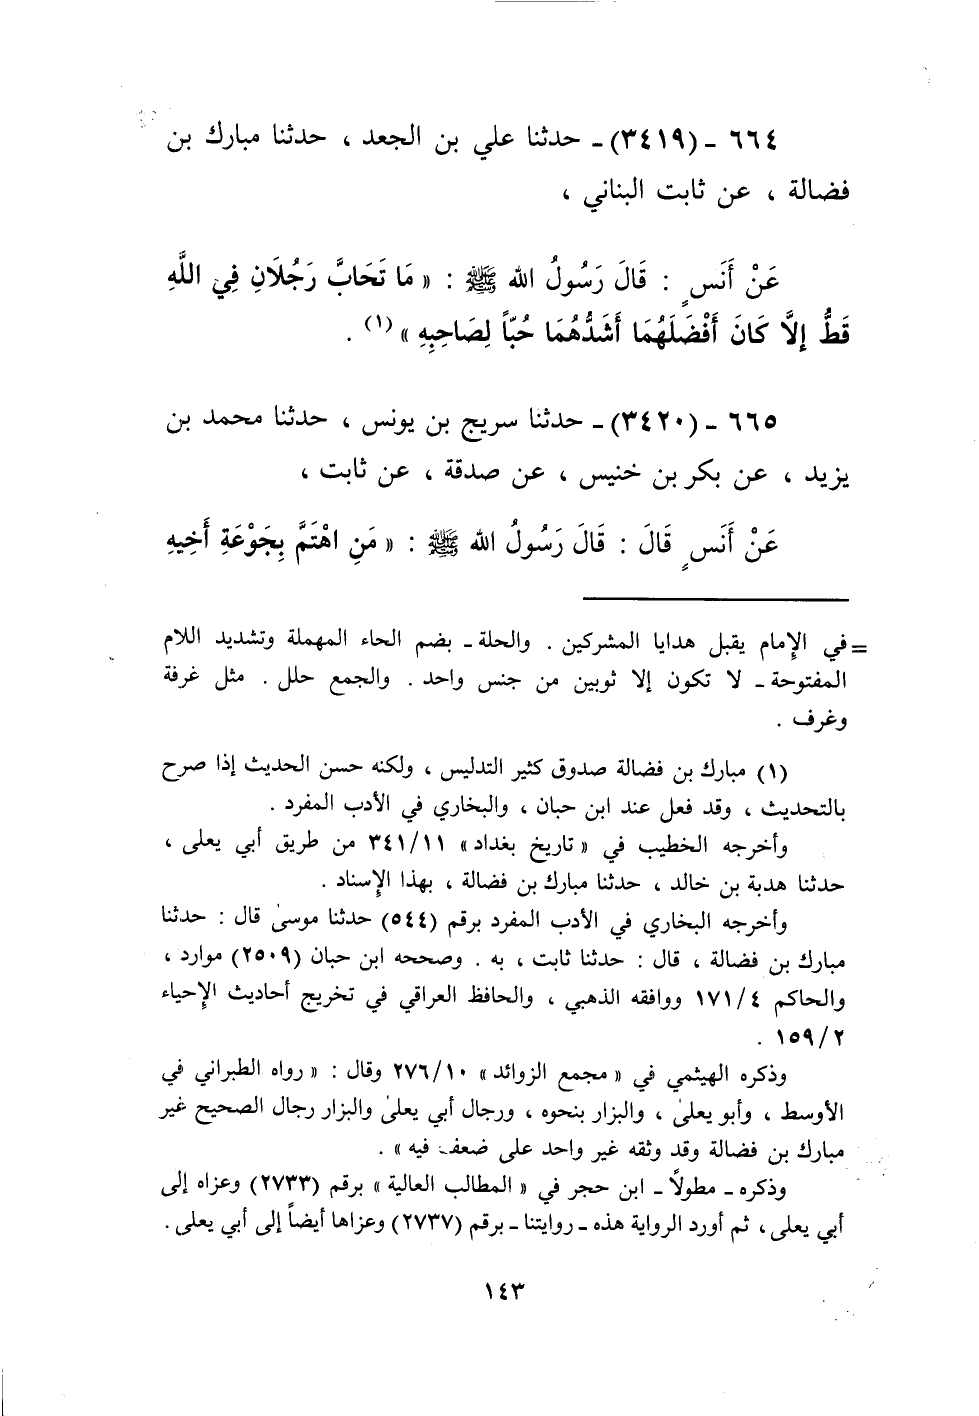 ٦٦٤ ـ (٣٤١٩) ـ حدثنا علي بن الجعد ، حدثنا مبارك بن
فضالة ، عن ثابت البناني ،
عَنْ أَنَسٍ : قَالَ رَسُولُ الله ﷺ : « مَا تَحَابَّ رَجُلَانِ فِي اللَّهِ
قَطُّ إِلاَّ كَانَ أَفْضَلَهُمَا أَشَدُّهُمَا حُبّاً لِصَاحِبِهِ » (١) .
٦٦٥ ـ (٣٤٢٠) ـ حدثنا سريج بن يونس ، حدثنا محمد بن
يزيد ، عن بكر بن خنيس ، عن صدقة ، عن ثابت ،
عَنْ أَنَسٍ قَالَ : قَالَ رَسُولُ الله ﷺ : « مَنِ اهْتَمَّ بِجَوْعَةِ أَخِيهِ
= في الإمام يقبل هدايا المشركين . والحلة ـ بضم الحاء المهملة وتشديد اللام
المفتوحة ـ لا تكون إلا ثوبين من جنس واحد . والجمع حلل . مثل غرفة
وغرف .
(١) مبارك بن فضالة صدوق كثير التدليس ، ولكنه حسن الحديث إذا صرح
بالتحديث ، وقد فعل عند ابن حبان ، والبخاري في الأدب المفرد .
وأخرجه الخطيب في « تاريخ بغداد » ٣٤١/١١ من طريق أبي يعلى ،
حدثنا هدبة بن خالد ، حدثنا مبارك بن فضالة ، بهذا الإسناد .
وأخرجه البخاري في الأدب المفرد برقم (٥٤٤) حدثنا موسىٰ قال : حدثنا
مبارك بن فضالة ، قال : حدثنا ثابت ، به . وصححه ابن حبان (٢٥٠٩) موارد ،
والحاكم ١٧١/٤ ووافقه الذهبي ، والحافظ العراقي في تخريج أحاديث الإحياء
١٥٩/٢ .
وذكره الهيثمي في « مجمع الزوائد » ٢٧٦/١٠ وقال : « رواه الطبراني في
الأوسط ، وأبو يعلىٰ ، والبزار بنحوه ، ورجال أبي يعلىٰ والبزار رجال الصحيح غير
مبارك بن فضالة وقد وثقه غير واحد على ضعف فيه » .
وذكره ـ مطولاً ـ ابن حجر في « المطالب العالية » برقم (٢٧٣٣) وعزاه إلى
أبي يعلى ، ثم أورد الرواية هذه ـ روايتنا ـ برقم (٢٧٣٧) وعزاها أيضاً إلى أبي يعلى .
١٤٣